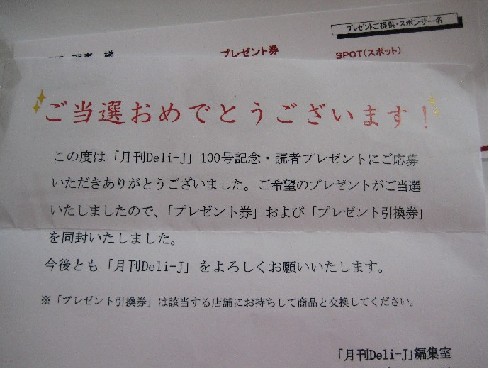 プレゼントご提供・スポンサー名
様
プレゼント券
SPOT(スポット)
ご当選おめでとうございます!
この度は「月刊Deli-J」100号記念・読者プレゼントにご応募
いただきありがとうございました。ご希望のプレゼントがご当選
いたしましたので、「プレゼント券」および「プレゼント引換券」
を同封いたしました。
今後とも「月刊Deli-J」をよろしくお願いいたします。
※「プレゼント引換券」は該当する店舗にお持ちして商品と交換してください。
「月刊Deli-J」編集室